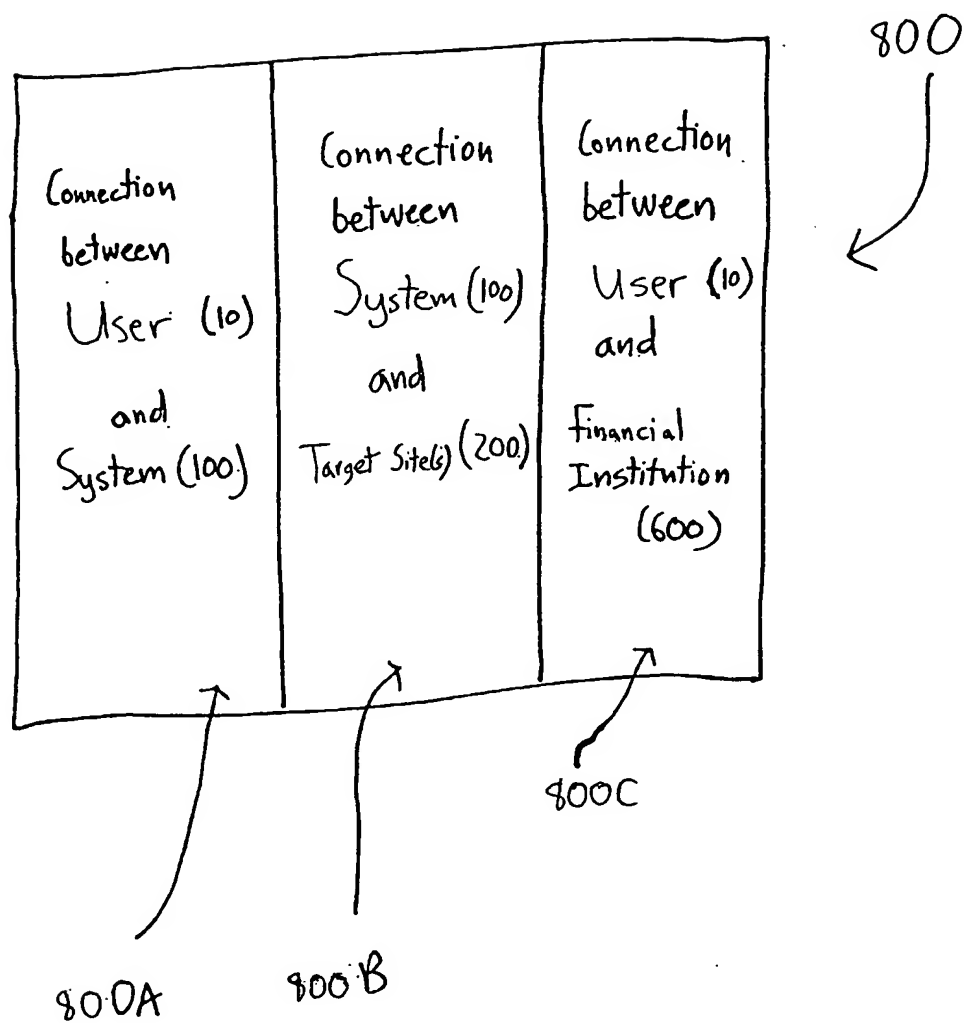 800
Connection
between
User (10)
and
System (100)
Connection
between
System (100)
and
Target Site(s) (200)
Connection
between
User (10)
and
Financial
Institution
(600)
800A
800B
800C